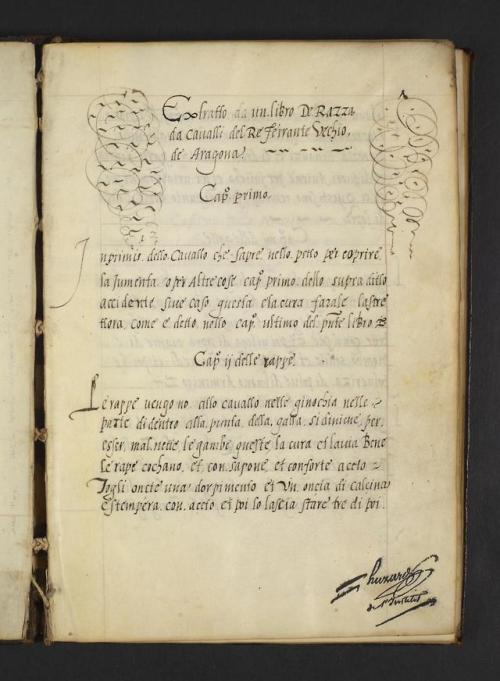 Extratto da un libro De Razza
da Cavalli del Re Ferrante Vechio,
de Aragona.
Cap.o primo.
Inprimis dello Cavallo che sapre nello petto per coprire
la Jumenta o per Altre cose cap.o primo dello supra ditto
accidente sive caso questa e la cura farale
come e detto nello cap.o ultimo del pnte libro
Cap. ij delle rappe.
Le rappe vengono allo cavallo nelle ginochia nelle
parte didentro alla punta della garra si diviene per
esser mal nette le gambe queste la cura et lavia Bene
le rape con sapone et con forte aceto
Togli oncie una dorpimento et un oncia di calcina
e stempera con aceto et poi lo lascia stare tre di poi
huzard
de l'Institut